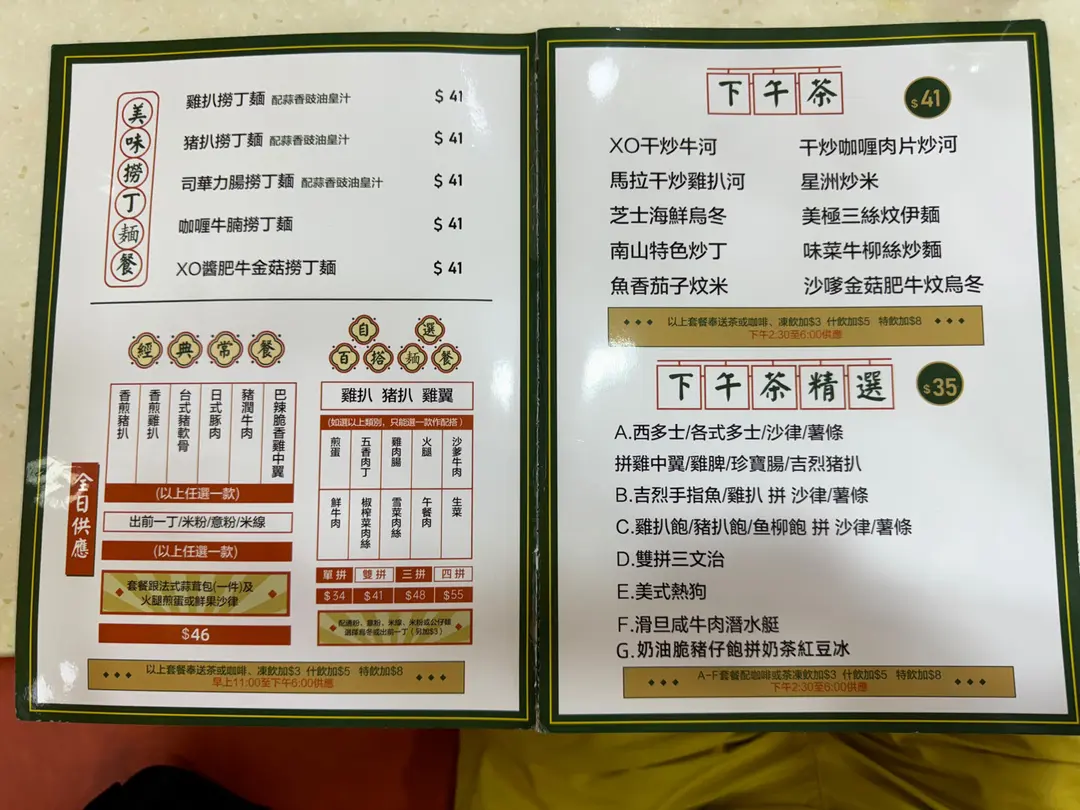 美味撈丁麵餐
雞扒撈丁麵 配蒜香豉油皇汁 $ 41
豬扒撈丁麵 配蒜香豉油皇汁 $ 41
司華力腸撈丁麵 配蒜香豉油皇汁 $ 41
咖喱牛腩撈丁麵 $ 41
XO醬肥牛金菇撈丁麵 $ 41
全日供應
經典常餐
香煎豬扒
香煎雞扒
台式豬軟骨
日式豚肉
豬潤牛肉
巴辣脆香雞中翼
(以上任選一款)
出前一丁/米粉/意粉/米線
(以上任選一款)
套餐跟法式蒜茸包(一件)及
火腿煎蛋或鮮果沙律
$46
自選
百搭麵餐
雞扒 豬扒 雞翼
(如選以上類別，只能選一款作配搭)
煎蛋
五香肉丁
雞肉腸
火腿
沙爹牛肉
鮮牛肉
椒榨菜肉絲
雪菜肉絲
午餐肉
生菜
單拼 雙拼 三拼 四拼
$34 $41 $48 $55
配通粉、意粉、米線、米粉或公仔麵
選擇烏冬或出前一丁（另加$3）
以上套餐奉送茶或咖啡、凍飲加$3 什飲加$5 特飲加$8
早上11:00至下午6:00供應
下午茶 $41
XO干炒牛河 干炒咖喱肉片炒河
馬拉干炒雞扒河 星洲炒米
芝士海鮮烏冬 美極三絲炆伊麵
南山特色炒丁 味菜牛柳絲炒麵
魚香茄子炆米 沙嗲金菇肥牛炆烏冬
以上套餐奉送茶或咖啡、凍飲加$3 什飲加$5 特飲加$8
下午2:30至6:00供應
下午茶精選 $35
A.西多士/各式多士/沙律/薯條
拼雞中翼/雞脾/珍寶腸/吉烈猪扒
B.吉烈手指魚/雞扒 拼 沙律/薯條
C.雞扒飽/豬扒飽/鱼柳飽 拼 沙律/薯條
D.雙拼三文治
E.美式熱狗
F.滑旦咸牛肉潛水艇
G.奶油脆豬仔飽拼奶茶紅豆冰
A-F套餐配咖啡或茶凍飲加$3 什飲加$5 特飲加$8
下午2:30至6:00供應